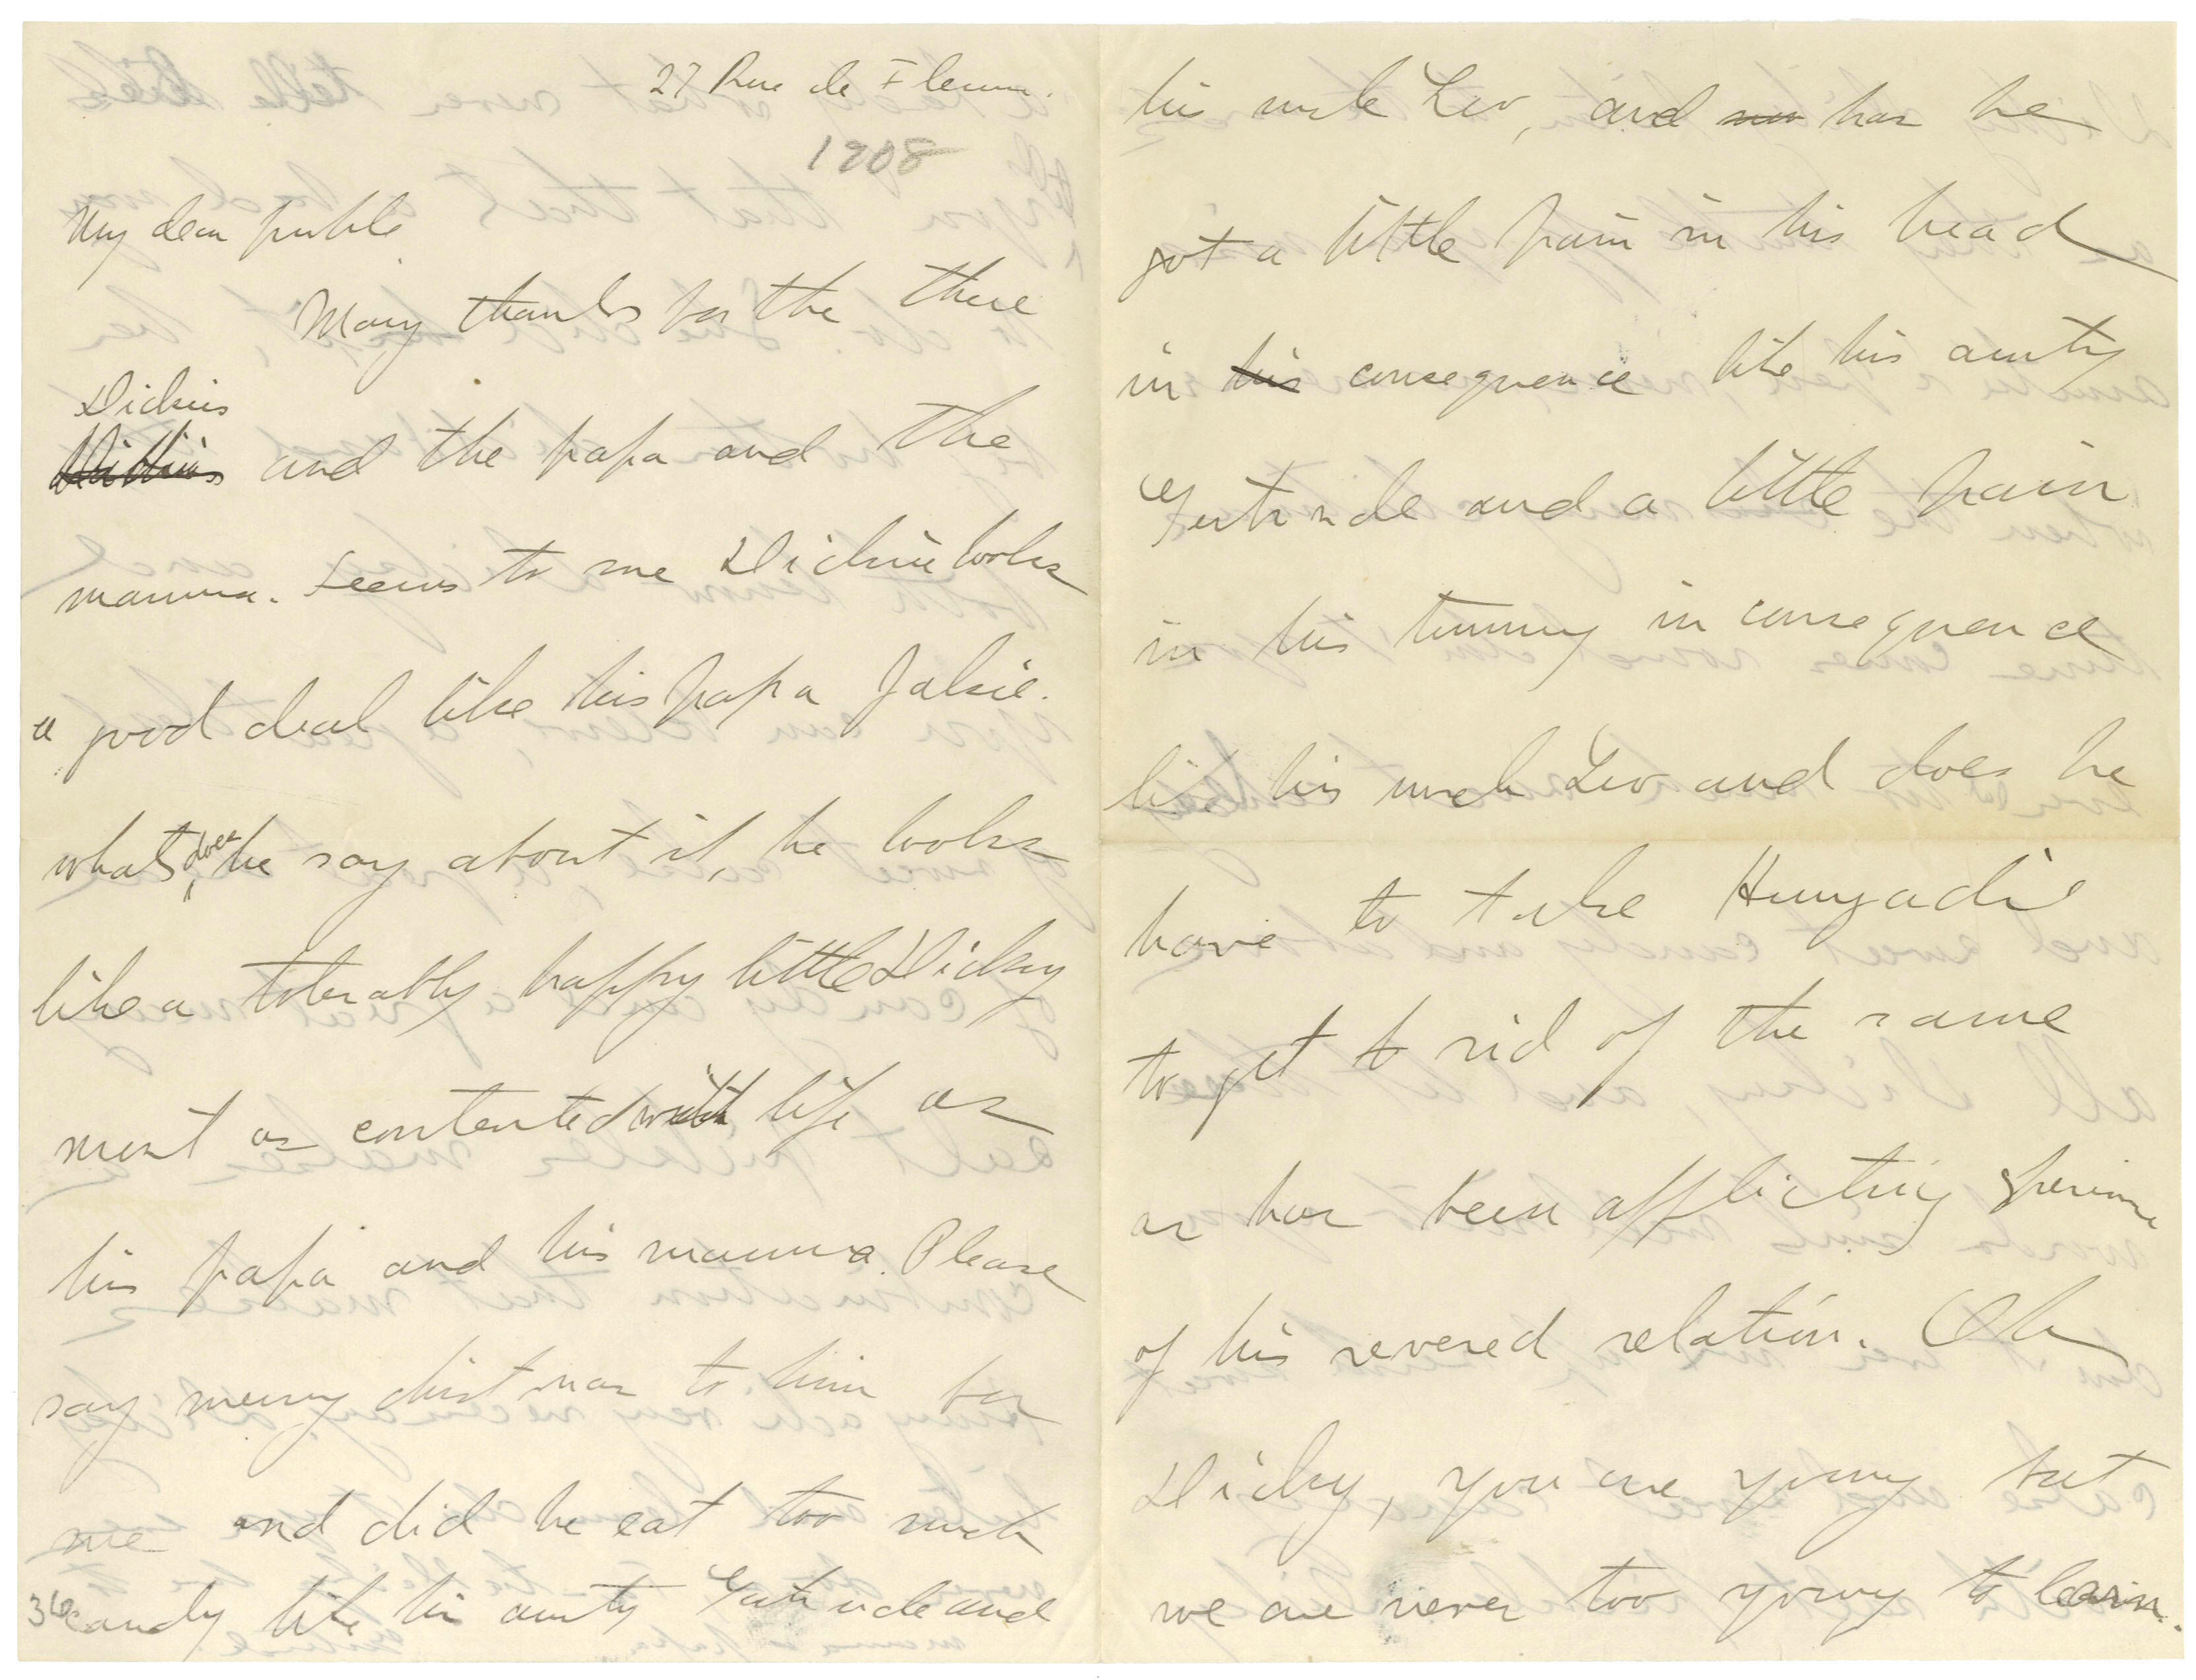 27 Rue de Fleurus.
1908
My dear people
Many thanks for the three
Dickies
and the papa and the
mamma. Seems to me Dickie looks
a good deal like his papa Jakie.
what does he say about it, he looks
like a tolerably happy little Dicky
most as contented with life as
his papa and his mamma. Please
say merry christmas to him for
me and did he eat too much
36 candy like his aunty Gertrude and
his uncle Leo, and has he
got a little pain in his head
in his consequence like his aunty
Gertrude and a little pain
in his tummy in consequence
like his uncle Leo and does he
have to take Hunyadi
to get rid of the same
as has been afflicting
of his revered relation. Oh
Dicky, you are young but
we are never too young to learn.